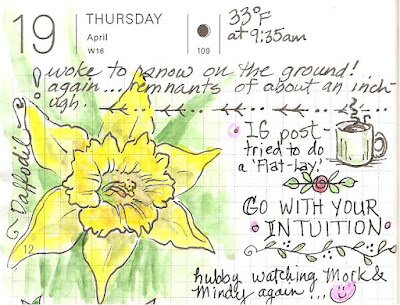 19 THURSDAY
April
W16 109
33°F
at 9:35am
woke to snow on the ground!
again... remnants of about an inch-
ugh.
Daffodil
IG post-
tried to do
a 'Flat-Lay'
GO WITH YOUR
INTUITION
12
hubby watching Mork &
Mindy again...